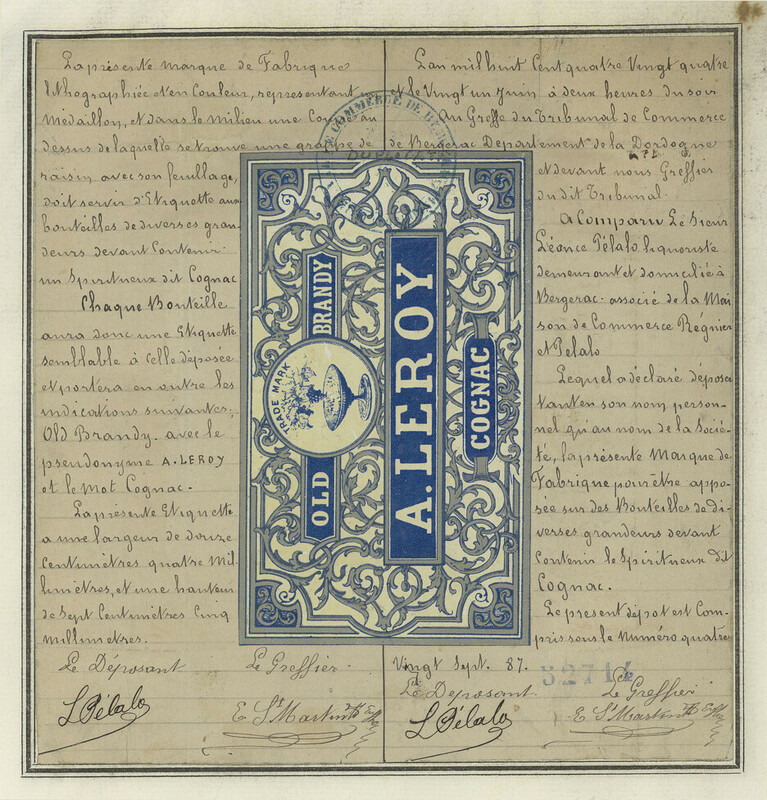 La présente marque de Fabrique
lithographiée et en Couleur, représentant un
Médaillon, et dans le milieu une Coupe au
dessus de laquelle se trouve une grappe de
raisin avec son feuillage,
doit servir d'Etiquette aux
bouteilles de diverses gran-
deurs devant Contenir
un Spiritueux dit Cognac
Chaque Bouteille
aura donc une Etiquette
semblable à Celle déposée
et portera en outre les
indications suivantes:
Old Brandy. avec le
pseudonyme A. LEROY
et le Mot Cognac.
La présente Etiquette
a une largeur de douze
Centimètres quatre Mil-
limètres, et une hauteur
de Sept Centimètres Cinq
Millimètres.
Le Déposant
Le Greffier
L Pélalo
E St Martin
OLD
BRANDY
TRADE MARK
A. LEROY
COGNAC
COMMERCE DE
L'an mil huit Cent quatre Vingt quatre
et le Vingt un Juin à deux heures du soir
Au Greffe du Tribunal de Commerce
de Bergerac Département de la Dordogne
et devant nous Greffier
du dit Tribunal.
a Comparu Le Sieur
Léonce Pélalo liquoriste
demeurant et domicilié à
Bergerac. associé de la Mai
son de Commerce Régnier
et Pélalo
Lequel a déclaré déposer
tant en son nom person-
nel qu'au nom de la Socié-
té, la présente Marque de
Fabrique pour être appo-
sée sur des Bouteilles de di-
verses grandeurs devant
Contenir le Spiritueux dit
Cognac.
Le présent dépot est Com-
pris sous le Numéro quatre
Vingt Sept. 87.
Le Déposant
Le Greffier
L Pélalo
E St Martin